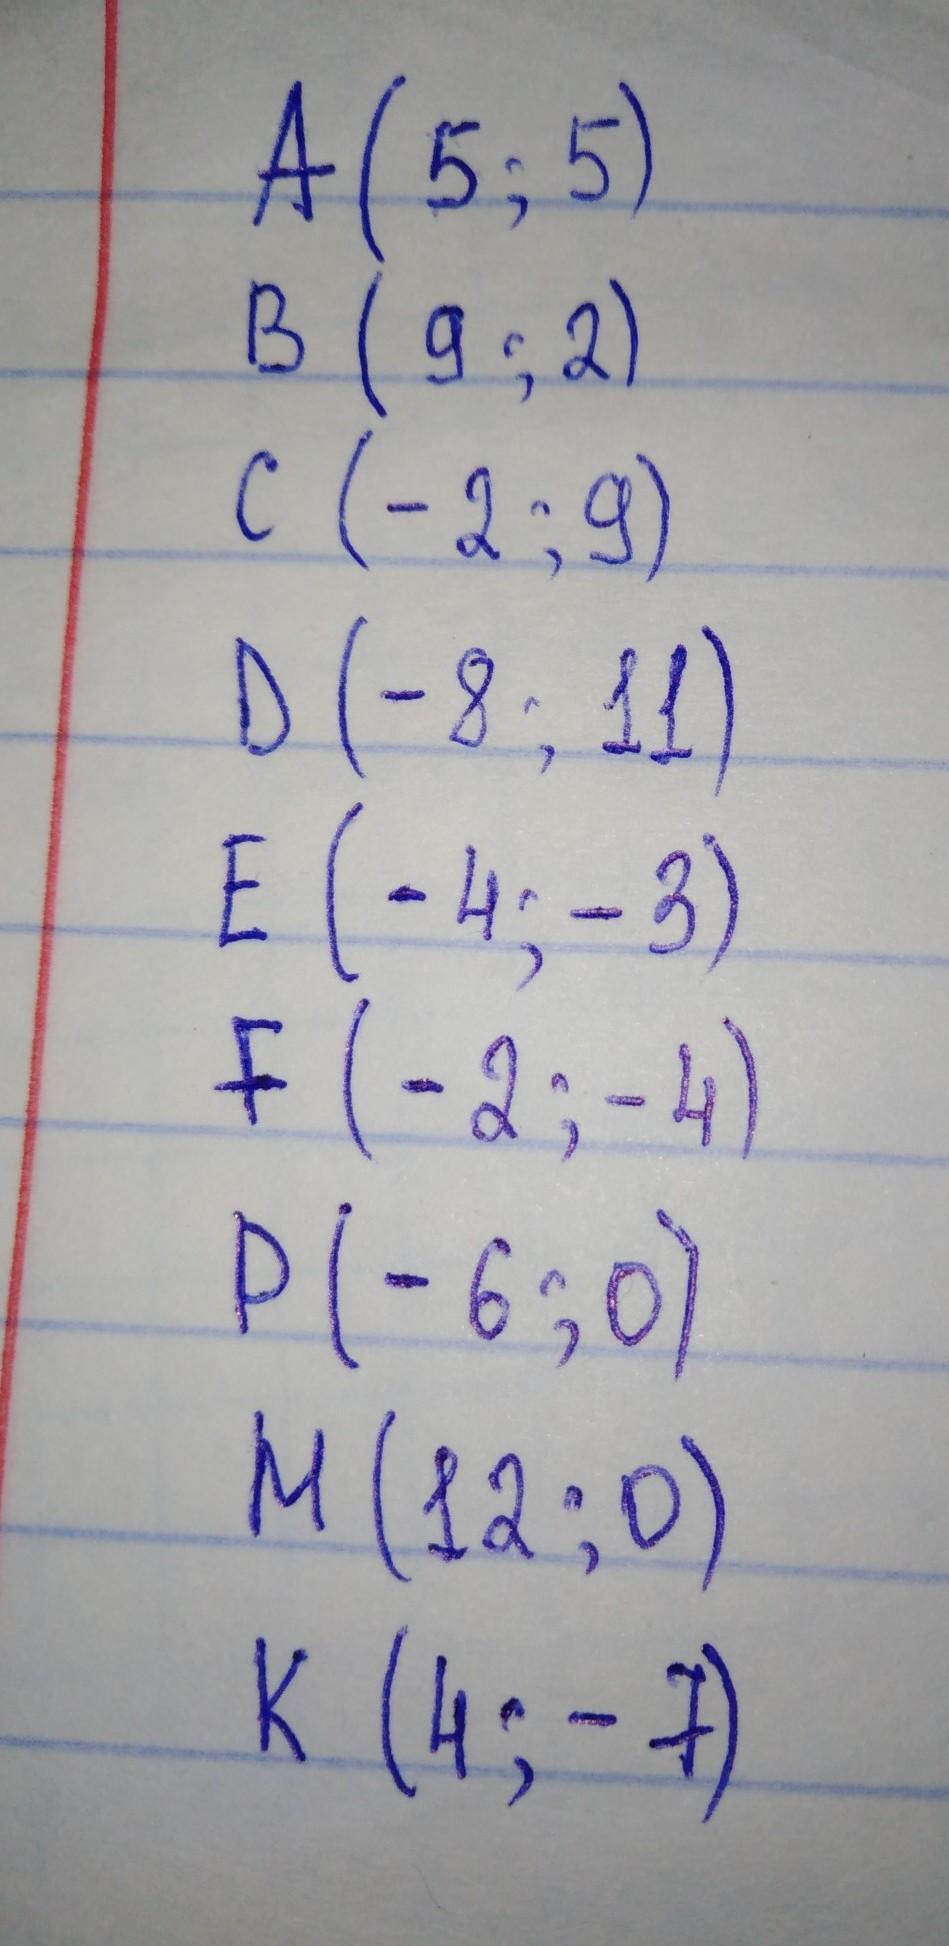 A ( 5 ; 5 )
B ( 9 ; 2 )
C ( - 2 ; 9 )
D ( - 8 ; 11 )
E ( - 4 ; - 3 )
F ( - 2 ; - 4 )
P ( - 6 ; 0 )
M ( 12 ; 0 )
K ( 4 ; - 7 )